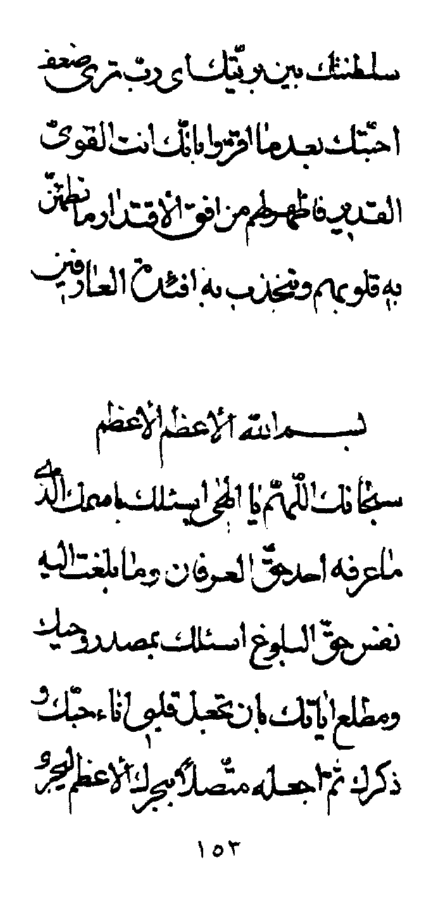 سلطنتك بين بريّتك اى ربّ ترى ضعف
احبّتك بعد ما اقرّوا بانّك انت القوىّ
القدير فاظهر لهم من افق الاقتدار ما تطمئنّ
به قلوبهم وتنجذب به افئدة العارفين
بسم الله الاعظم الاعظم
سبحانك اللّهمّ يا الهى اسئلك باسمك الّذى
ما عرفه احد حقّ العرفان وما بلغت اليه
نفس حقّ البلوغ اسئلك بمصدر وحيك
ومطلع اياتك بان تجعل قلبى اناء حبّك و
ذكرك ثمّ اجعله متّصلاً ببحرك الاعظم ليجرى
١٥٣